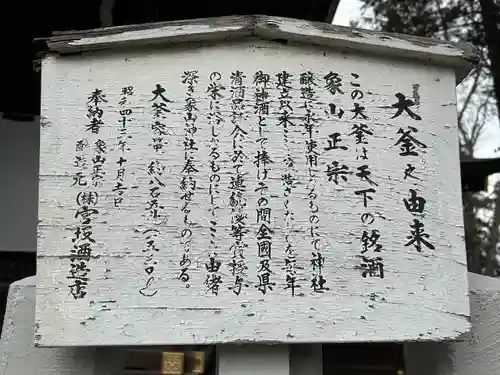 大釜之由来
この大釜は天下の銘酒
象山正宗
醸造に永年使用したるものにて神社
建立以来ここに造酒したるを毎年
御神酒として捧げその間全国及県
清酒品評会に於て連続優等賞授与
の栄に浴したるものにしてここに由緒
深き象山神社に奉納せるものである。
大釜容量 約八石五斗(一五三〇L)
昭和四十三年十月十五日
奉納者 象山正宗
醸造元 (株)宮坂酒造店